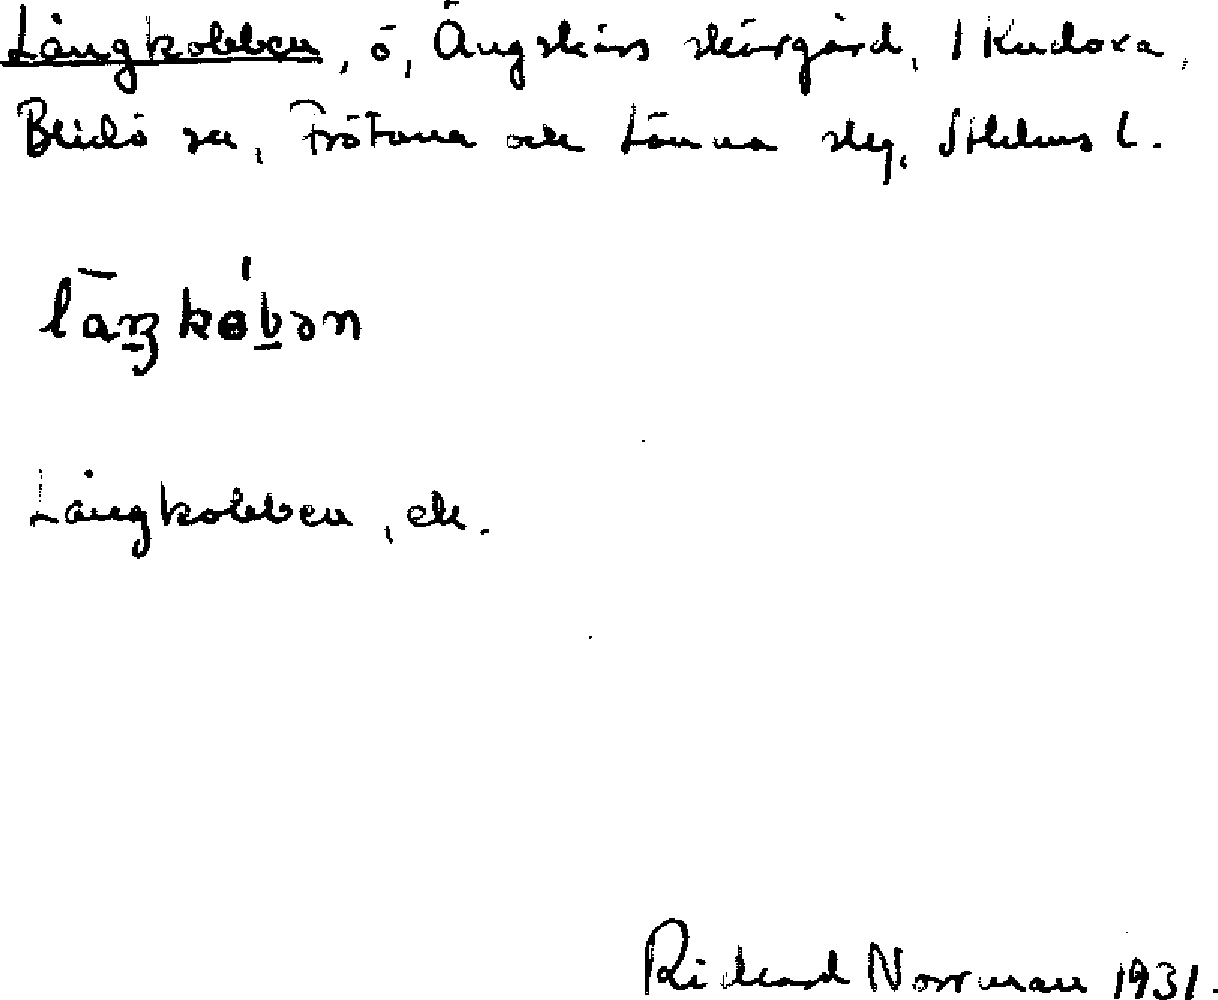 Långkobben, ö, Ängskärs skärgård, 1 Kudoxa,
Blidö sn, Frötuna och Länna skg, Sthlms l.
lāŋkɵ́bən
Långkobben, ek.
Rickard Norrman 1931.